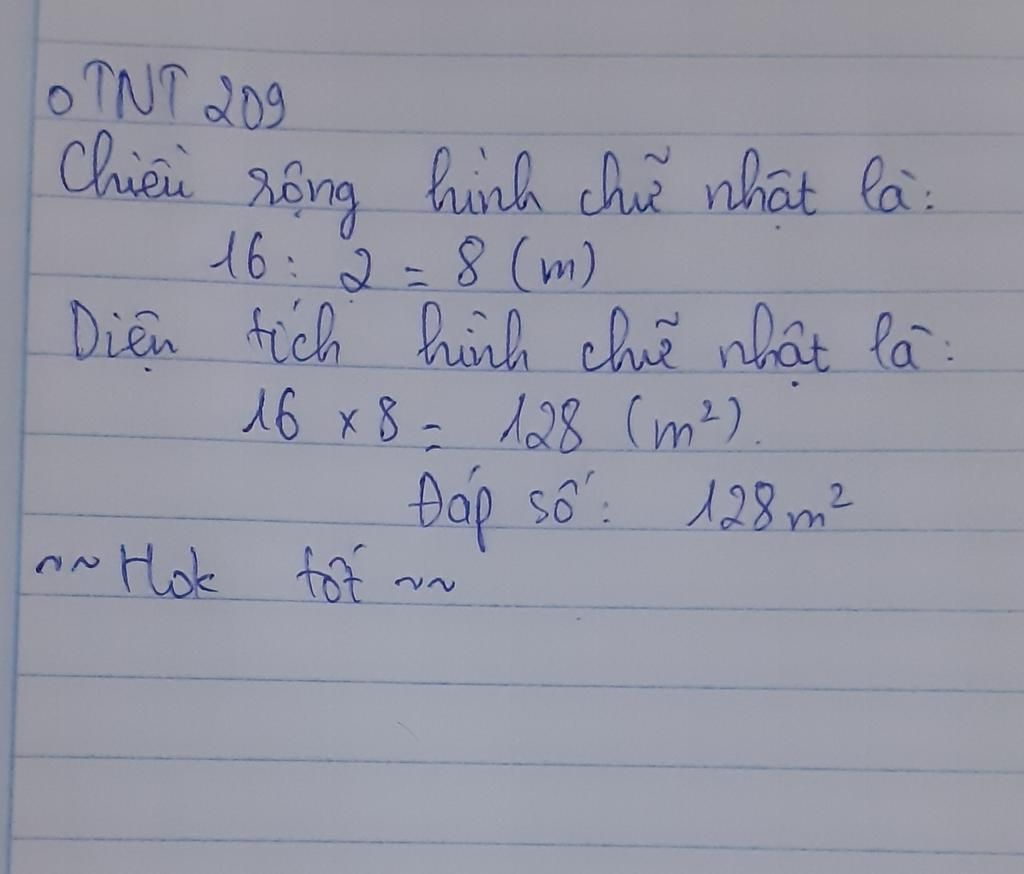 oTNT 209
Chiều rộng hình chữ nhật là:
16 : 2 = 8 (m)
Diện tích hình chữ nhật là:
16 x 8 = 128 (m²).
Đáp số: 128m²
~~ Hok tốt ~~